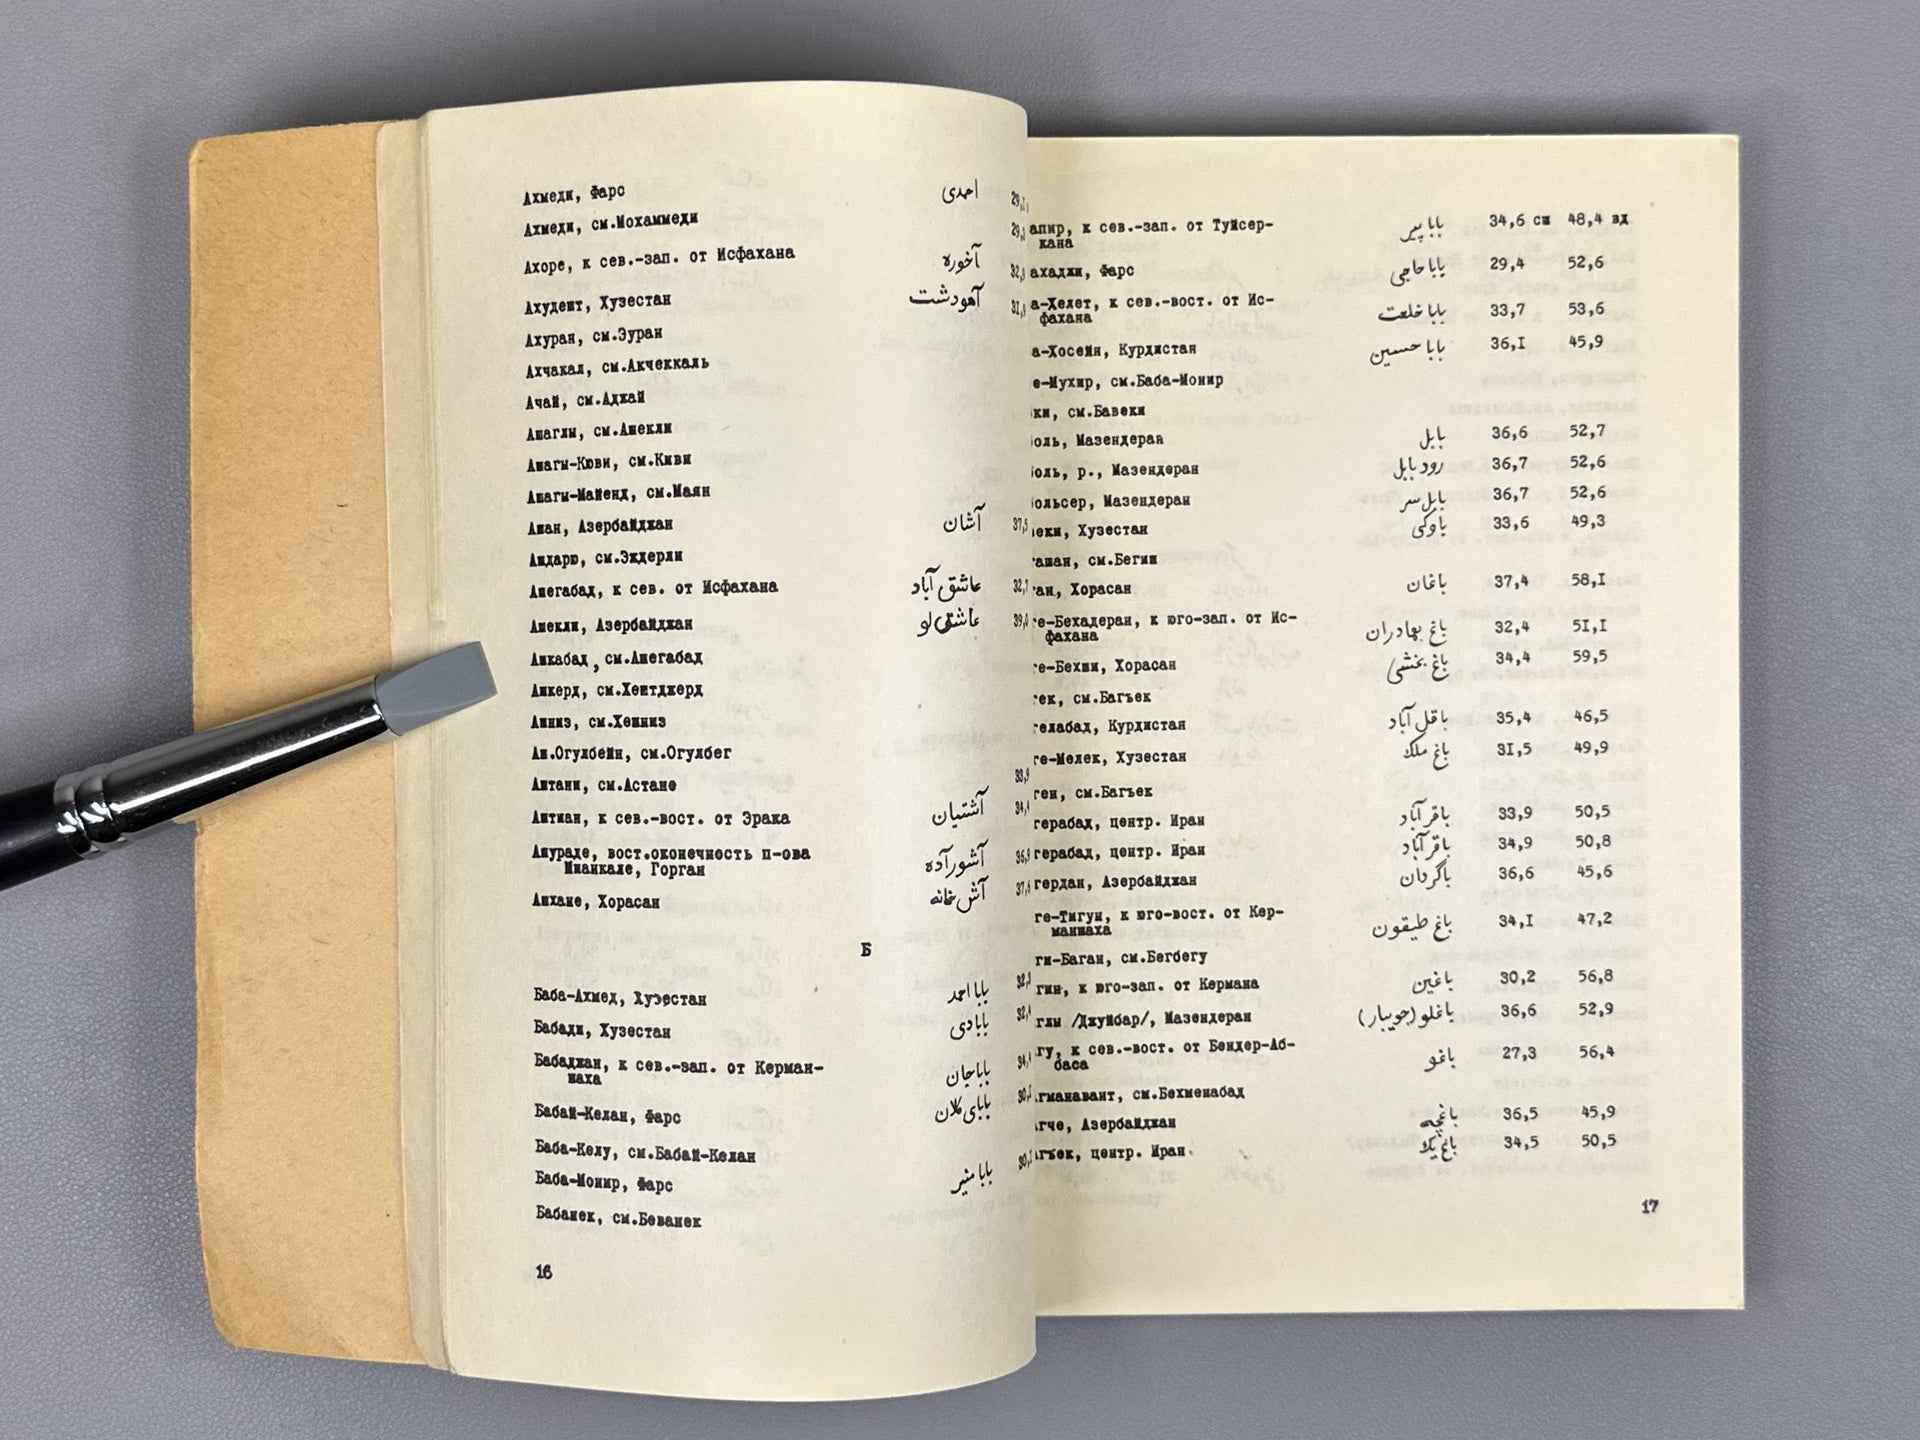 Ахмеди, Фарс احمدی
Ахмеди, см.Мохаммеди
Ахоре, к сев.-зап. от Исфахана آخوره
Ахудешт, Хузестан آهودشت
Ахуран, см.Зуран
Ахчакал, см.Акчеккаль
Ачай, см.Аджай
Ашаглы, см.Ашекли
Ашагы-Кюви, см.Киви
Ашагы-Майенд, см.Маян
Ашан, Азербайджан آشان 37,5
Ашдарю, см.Эждерли
Ашегабад, к сев. от Исфахана عاشق آباد
Ашекли, Азербайджан عاشق لو
Ашкабад, см.Ашегабад
Ашкерд, см.Хештджерд
Ашниз, см.Хешниз
Аш.Огулбейн, см.Огулбег
Аштани, см.Астане
Аштиан, к сев.-вост. от Эрака آشتیان
Ашураде, вост.оконечность п-ова
Мианкале, Горган آشورآده
Ашхане, Хорасан آش خانه
Б
Баба-Ахмед, Хузестан بابا احمد
Бабади, Хузестан بابادی
Бабаджан, к сев.-зап. от Керман-
шаха باباجان
Бабай-Келан, Фарс بابای کلان
Баба-Келу, см.Бабай-Келан
Баба-Монир, Фарс بابا منیر
Бабанек, см.Беванек
16
апир, к сев.-зап. от Туйсер-
кана بابا پیر 34,6 сш 48,4 вд
ахаджи, Фарс باباحاجی 29,4 52,6
а-Хелет, к сев.-вост. от Ис-
фахана بابا خلعت 33,7 53,6
а-Хосейн, Курдистан بابا حسین 36,I 45,9
е-Мухир, см.Баба-Монир
ки, см.Бавеки
оль, Мазендеран بابل 36,6 52,7
оль, р., Мазендеран رود بابل 36,7 52,6
ольсер, Мазендеран بابل سر 36,7 52,6
еки, Хузестан باوکی 33,6 49,3
ашан, см.Бегин
ан, Хорасан باغان 37,4 58,I
ге-Бехадеран, к юго-зап. от Ис-
фахана باغ بهادران 32,4 5I,I
ге-Бехши, Хорасан باغ بخشی 34,4 59,5
ек, см.Багъек
гелабад, Курдистан باقل آباد 35,4 46,5
ге-Мелек, Хузестан باغ ملک 3I,5 49,9
ген, см.Багъек
герабад, центр. Иран باقرآباد 33,9 50,5
герабад, центр. Иран باقرآباد 34,9 50,8
гердан, Азербайджан باگردان 36,6 45,6
ге-Тигун, к юго-вост. от Кер-
маншаха باغ طیقون 34,I 47,2
ги-Баган, см.Бегбегу
гин, к юго-зап. от Кермана باغین 30,2 56,8
глы /Джуйбар/, Мазендеран باغلو (جویبار) 36,6 52,9
гу, к сев.-вост. от Бендер-Аб-
баса باغو 27,3 56,4
гманавант, см.Бехменабад
гче, Азербайджан باغچه 36,5 45,9
гъек, центр. Иран باغ یک 34,5 50,5
17